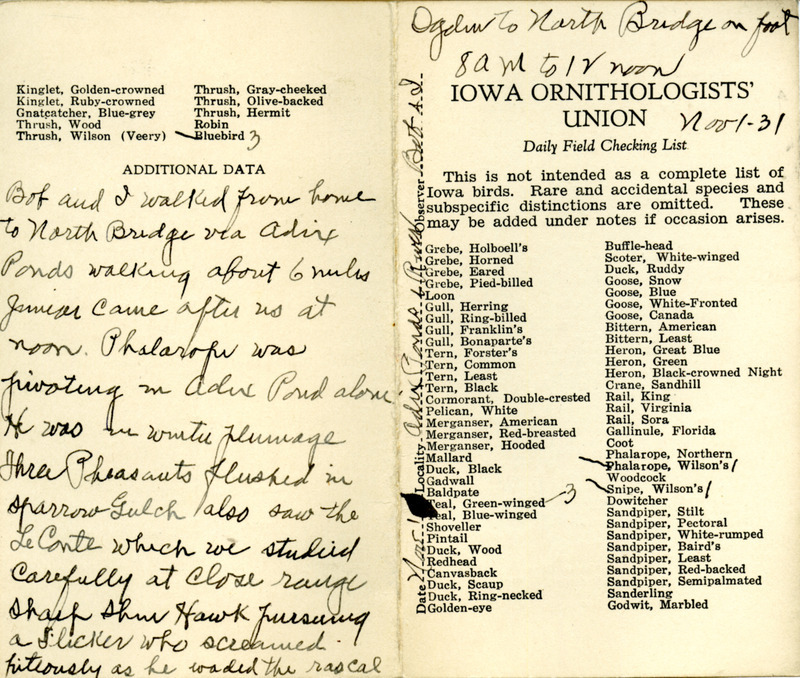 Kinglet, Golden-crowned
Kinglet, Ruby-crowned
Gnatcatcher, Blue-grey
Thrush, Wood
Thrush, Wilson (Veery)
Thrush, Gray-cheeked
Thrush, Olive-backed
Thrush, Hermit
Robin
Bluebird 3
ADDITIONAL DATA
Bob and I walked from home
to North Bridge via Adix
Ponds walking about 6 miles
Junior came after us at
noon. Phalarope was
pivoting in Adix Pond alone
He was in winter plumage
Three Pheasants flushed in
sparrow Gulch also saw the
LeConte which we studied
carefully at close range
Sharp Shin Hawk pursuing
a Flicker who screamed
piteously as he evaded the rascal
Ogden to North Bridge on foot
8 A M to 12 noon
IOWA ORNITHOLOGISTS'
UNION
Nov 1-31
Daily Field Checking List
This is not intended as a complete list of
Iowa birds. Rare and accidental species and
subspecific distinctions are omitted. These
may be added under notes if occasion arises.
Date Nov 1 Locality Adix Ponds & Observer Bob & I
Grebe, Holboell's
Grebe, Horned
Grebe, Eared
Grebe, Pied-billed
Loon
Gull, Herring
Gull, Ring-billed
Gull, Franklin's
Gull, Bonaparte's
Tern, Forster's
Tern, Common
Tern, Least
Tern, Black
Cormorant, Double-crested
Pelican, White
Merganser, American
Merganser, Red-breasted
Merganser, Hooded
Mallard
Duck, Black
Gadwall
Baldpate
Teal, Green-winged 3
Teal, Blue-winged
Shoveller
Pintail
Duck, Wood
Redhead
Canvasback
Duck, Scaup
Duck, Ring-necked
Golden-eye
Buffle-head
Scoter, White-winged
Duck, Ruddy
Goose, Snow
Goose, Blue
Goose, White-Fronted
Goose, Canada
Bittern, American
Bittern, Least
Heron, Great Blue
Heron, Green
Heron, Black-crowned Night
Crane, Sandhill
Rail, King
Rail, Virginia
Rail, Sora
Gallinule, Florida
Coot
Phalarope, Northern
Phalarope, Wilson's 1
Woodcock
Snipe, Wilson's 1
Dowitcher
Sandpiper, Stilt
Sandpiper, Pectoral
Sandpiper, White-rumped
Sandpiper, Baird's
Sandpiper, Least
Sandpiper, Red-backed
Sandpiper, Semipalmated
Sanderling
Godwit, Marbled